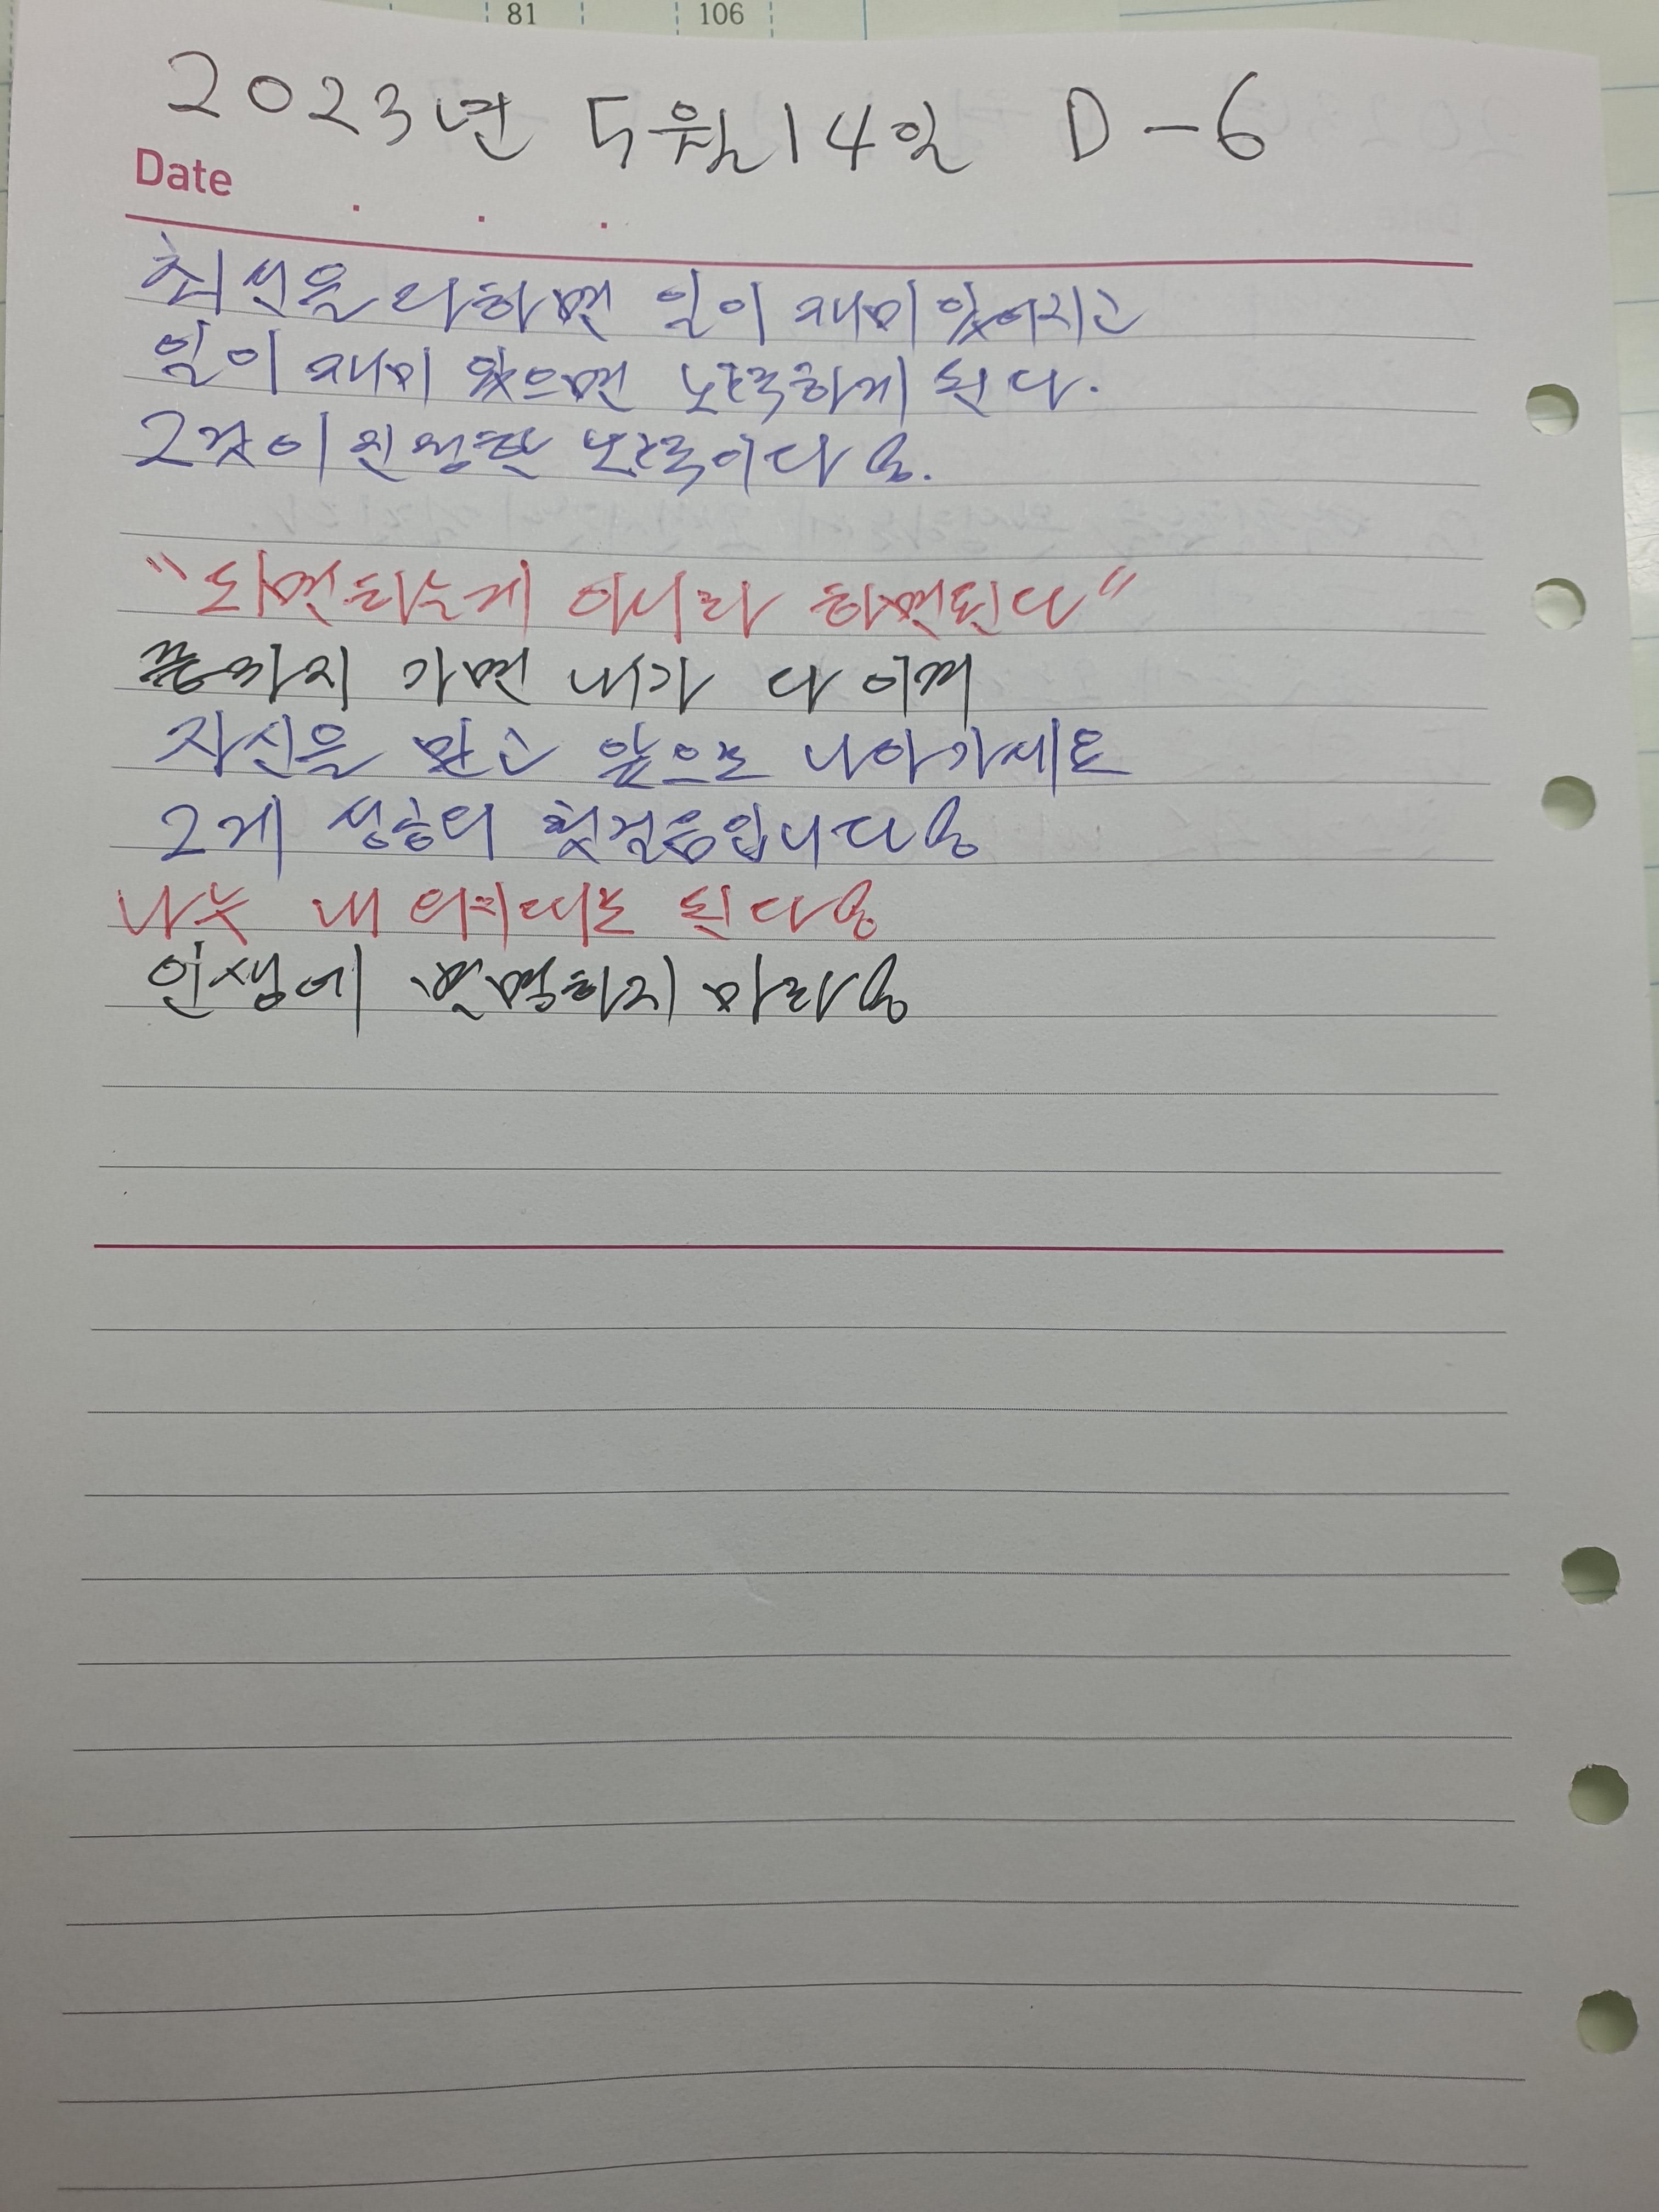 81 106
2023년 5월 14일 D-6
Date . . .
최선을 다하면 일이 재미 있어지고
일이 재미 있으면 노력하게 된다.
그것이 진정한 노력이다.
"되면하는게 아니라 하면된다"
끝까지 가면 내가 다 이겨
자신을 믿고 앞으로 나아가세요
그게 성공의 첫걸음입니다
나는 내 의지대로 된다
인생에 변명하지 마라